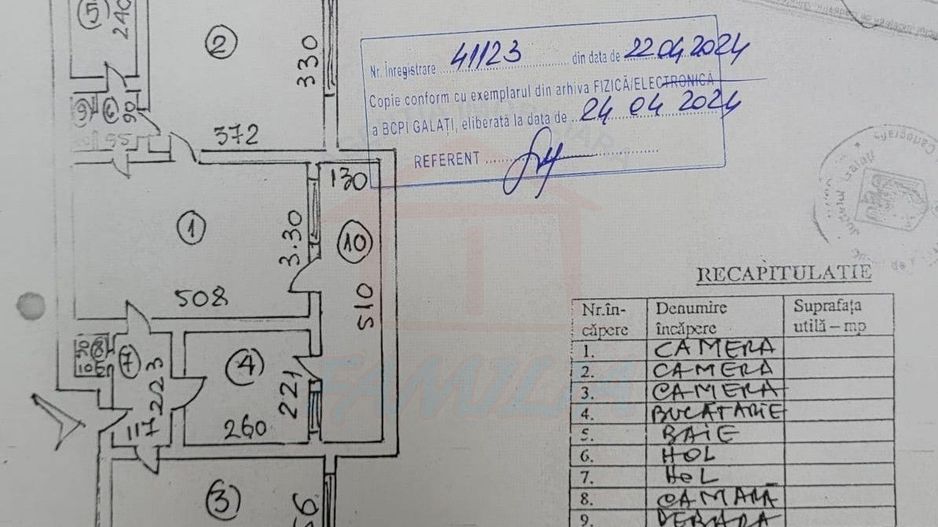 5
240
2
330
9
6
90
95
372
Nr. Înregistrare 41123 din data de 22.04.2024
Copie conform cu exemplarul din arhiva FIZICĂ/ELECTRONICĂ
a BCPI GALAȚI, eliberată la data de 24 04 2024
REFERENT
130
1
3.30
10
508
510
8
7
4
223
221
117
260
FAMILIA
3
RECAPITULATIE
Nr.în-
căpere
Denumire
încăpere
Suprafața
utilă – mp
1. CAMERA
2. CAMERA
3. CAMERA
4. BUCĂTARIE
5. BAIE
6. HOL
7. HOL
8. CAMARĂ
9. DEBARA